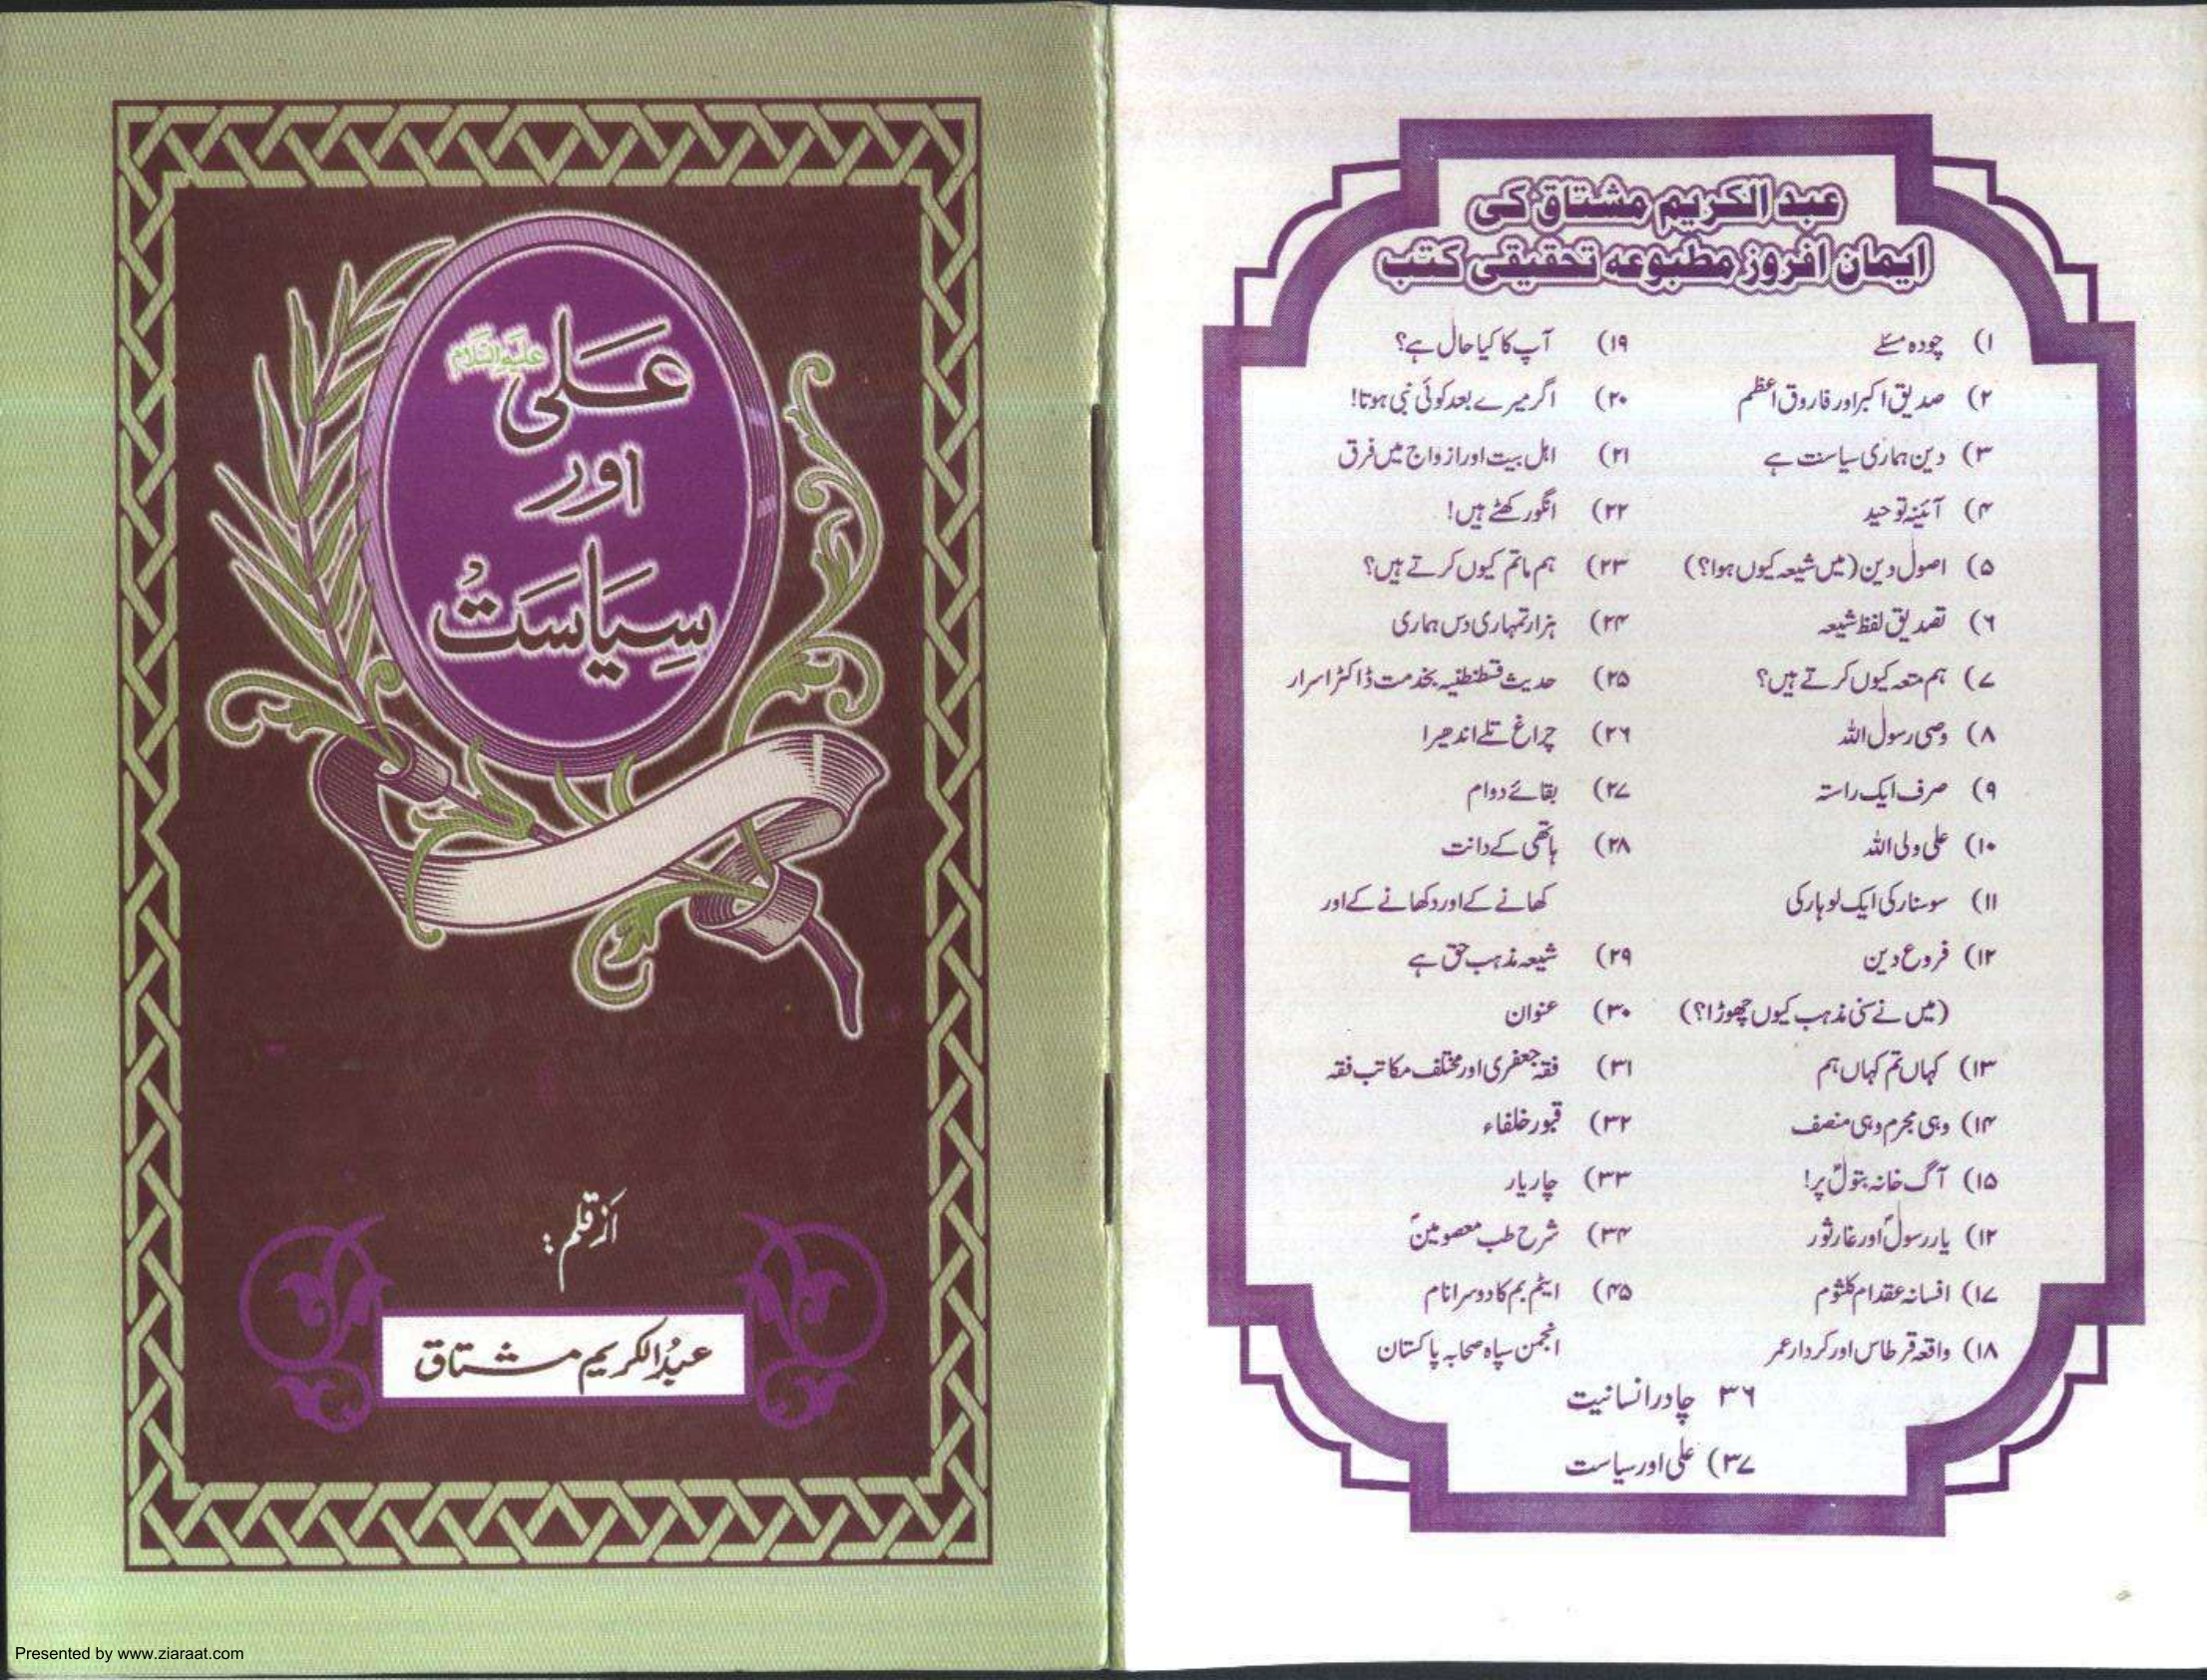 علی علیہ السلام
اور
سیاست
از قلم:
عبدالکریم مشتاق
Presented by www.ziaraat.com
عبد الکریم مشتاق کی
ایمان افروز مطبوعہ تحقیقی کتب
۱) چودہ مسئلے
۲) صدیق اکبر اور فاروق اعظم
۳) دین ہماری سیاست ہے
۴) آئینہ توحید
۵) اصول دین (میں شیعہ کیوں ہوا؟)
۶) تصدیق لفظ شیعہ
۷) ہم متعہ کیوں کرتے ہیں؟
۸) وصی رسول اللہ
۹) صرف ایک راستہ
۱۰) علی ولی اللہ
۱۱) سوسنار کی ایک لوہار کی
۱۲) فروع دین
(میں نے سنی مذہب کیوں چھوڑا؟)
۱۳) کہاں تم کہاں ہم
۱۴) وہی مجرم وہی منصف
۱۵) آگ خانہ بتولؑ پر!
۱۲) یار رسولؐ اور غار ثور
۱۷) افسانہ عقد ام کلثوم
۱۸) واقعہ قرطاس اور کردار عمر
۱۹) آپ کا کیا حال ہے؟
۲۰) اگر میرے بعد کوئی نبی ہوتا!
۲۱) اہل بیت اور ازواج میں فرق
۲۲) انگور کھٹے ہیں!
۲۳) ہم ماتم کیوں کرتے ہیں؟
۲۴) ہزار تمہاری دس ہماری
۲۵) حدیث قسطنطنیہ بخدمت ڈاکٹر اسرار
۲۶) چراغ تلے اندھیرا
۲۷) بقائے دوام
۲۸) ہاتھی کے دانت
کھانے کے اور دکھانے کے اور
۲۹) شیعہ مذہب حق ہے
۳۰) عنوان
۳۱) فقہ جعفری اور مختلف مکاتب فقہ
۳۲) قبور خلفاء
۳۳) چار یار
۳۴) شرح طب معصومینؑ
۴۵) ایٹم بم کا دوسرا نام
انجمن سپاہ صحابہ پاکستان
۳۶ چادر انسانیت
۳۷) علی اور سیاست